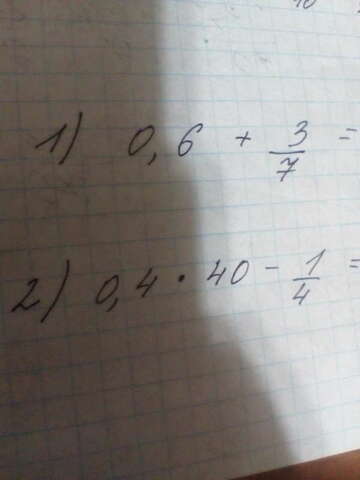 1) 0,6 + 3/7 =
2) 0,4 · 40 - 1/4 =